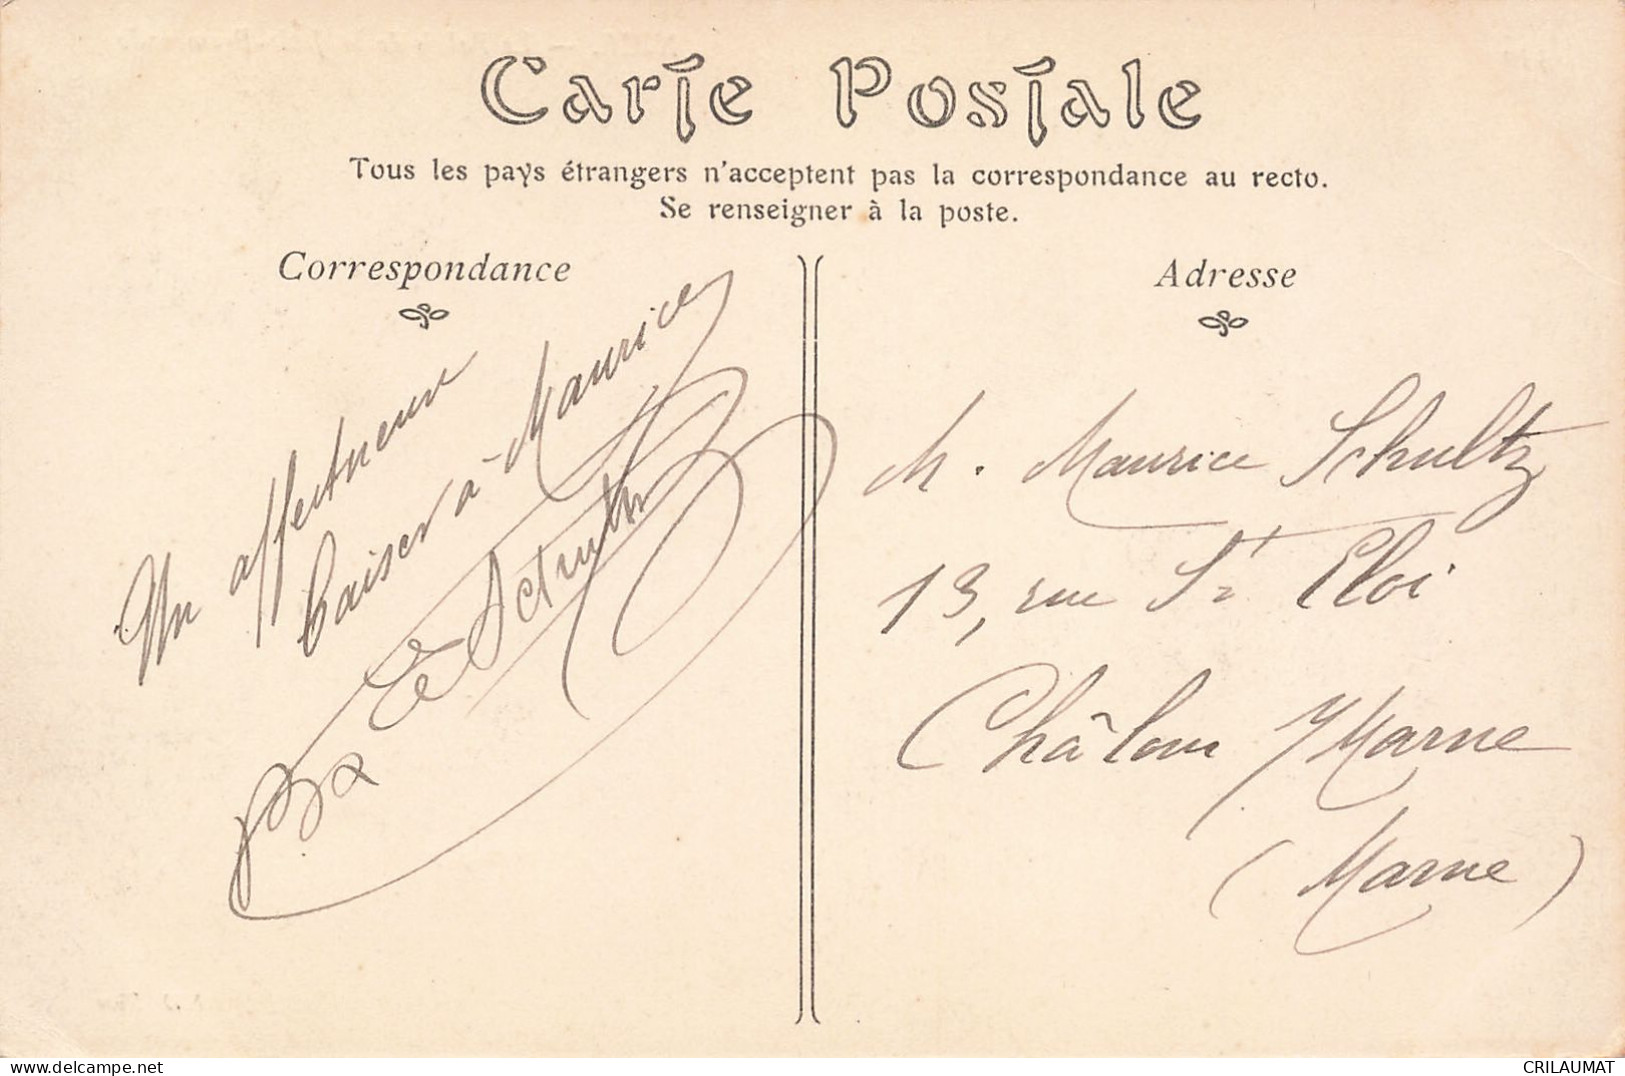 Carte Postale
Tous les pays étrangers n'acceptent pas la correspondance au recto.
Se renseigner à la poste.
Correspondance
Un affectueux
baiser à Maurice
Adresse
M. Maurice Schultz
13, rue St Eloi
Châlons s/Marne
(Marne)
CRILAUMAT